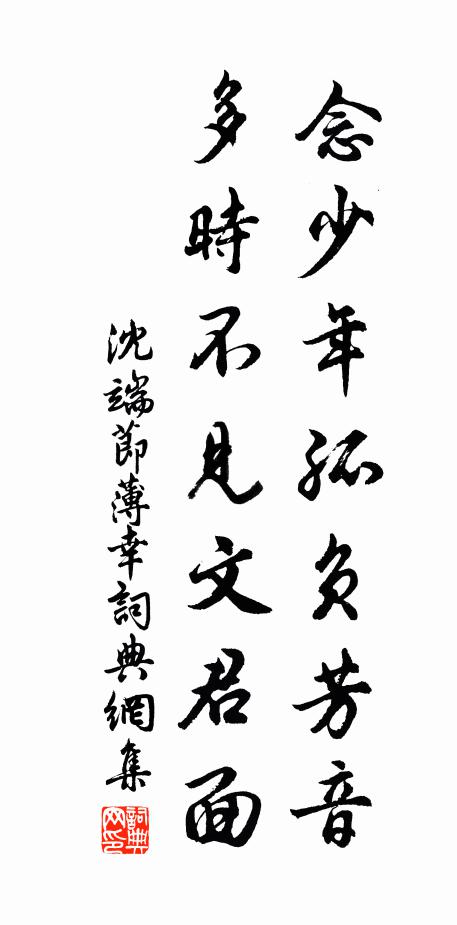 念少年孤負芳音
多時不見文君面
沈端節薄幸詞典網集
詞典网印